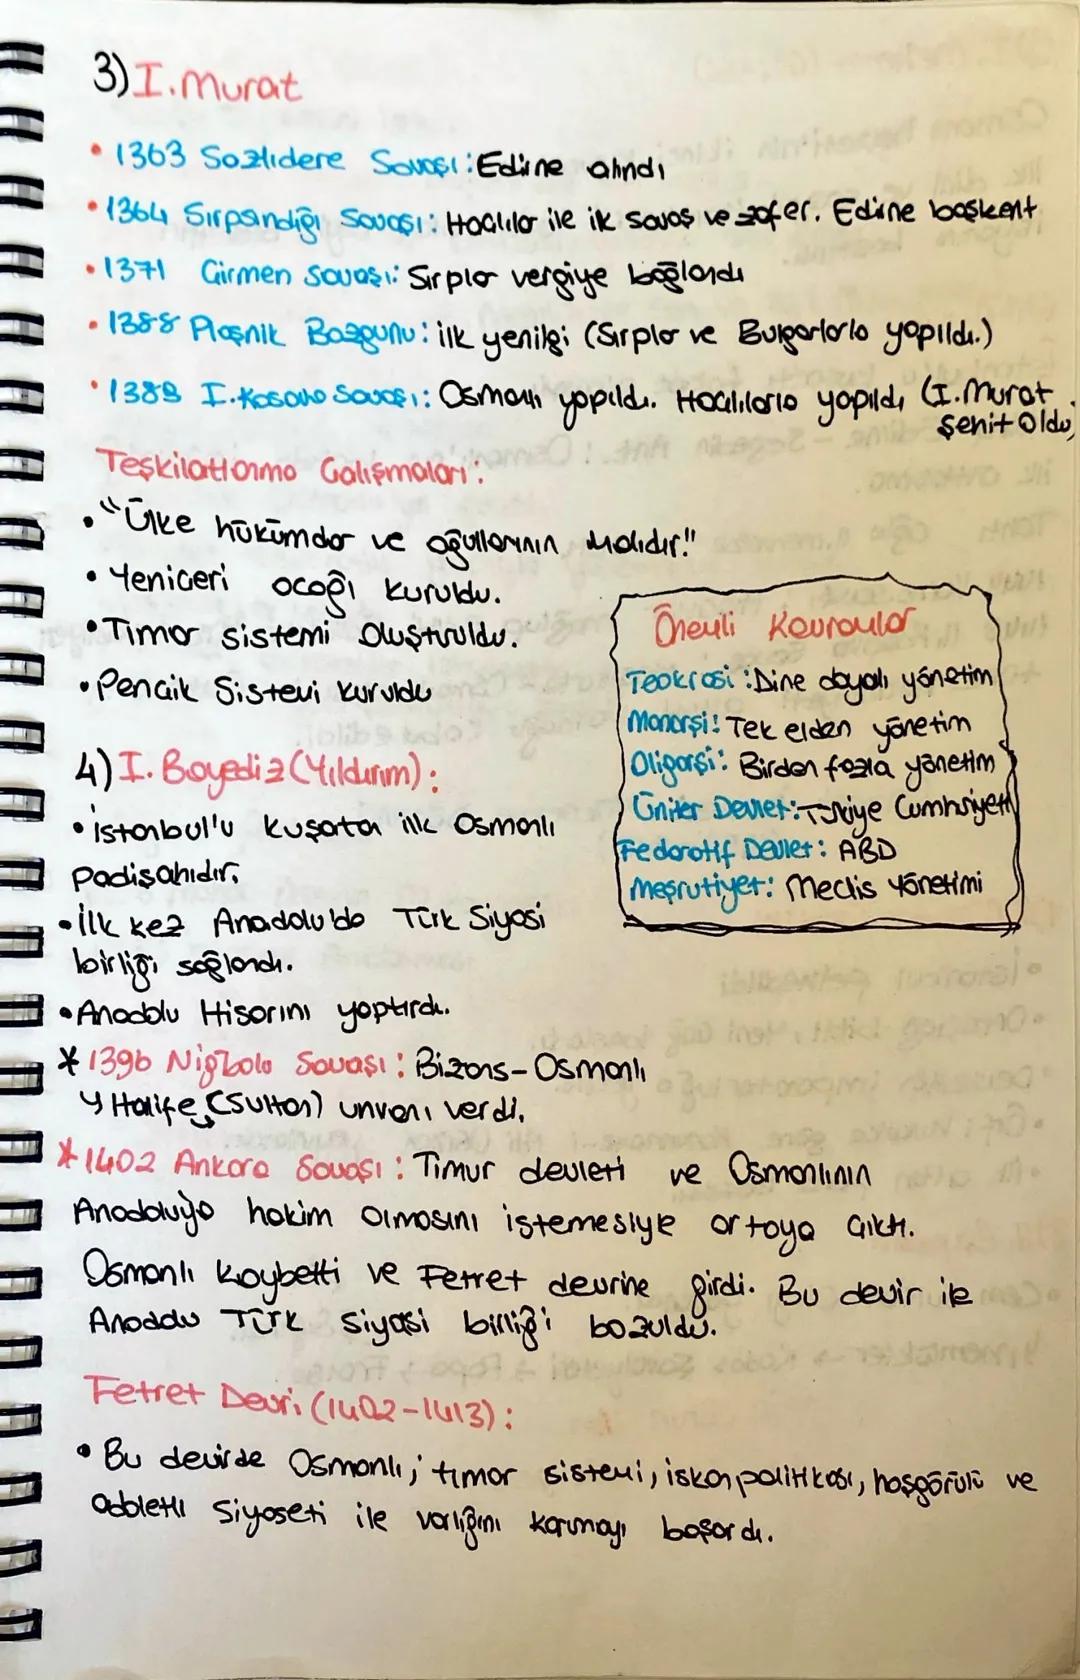 3) I. Murat
• 1363 Sazlıdere Savaşı: Edirne alındı
• 1364 Sırpsındığı Savaşı: Haçlılar ile ilk savaş ve zafer. Edirne başkent
• 1371 Çirmen Savaşı: Sırplar vergiye bağlandı
• 1388 Ploşnik Bozgunu: ilk yenilgi (Sırplar ve Bulgarlarla yapıldı.)
• 1389 I. Kosova Savaşı: Osmanlı yapıldı. Haçlılarla yapıldı (I. Murat
şehit oldu)
Teşkilatlanma Çalışmaları:
• "Ülke hükümdar ve oğullarının malıdır!"
• Yeniçeri ocağı kuruldu.
• Tımar sistemi oluşturuldu.
• Pencik Sistemi kuruldu
Önemli Kavramlar
Teokrasi: Dine dayalı yönetim
Monarşi: Tek elden yönetim
Oligarşi: Birden fazla yönetim
Üniter Devlet: Türkiye Cumhuriyeti
Federatif Devlet: ABD
Meşrutiyet: Meclis Yönetimi
4) I. Bayediz (Yıldırım):
• istanbul'u kuşatan ilk Osmanlı
padişahıdır.
• İlk kez Anadolu'da Türk Siyasi
birliği sağlandı.
• Anadolu Hisarını yaptırdı.
* 1396 Niğbolu Savaşı: Bizans-Osmanlı
↳ Halife (Sultan) unvanı verdi.
* 1402 Ankara Savaşı: Timur devleti ve Osmanlının
Anadoluya hakim olmasını istemesiyle ortaya çıktı.
Osmanlı kaybetti ve Fetret devrine girdi. Bu devir ile
Anadolu Türk siyasi birliği bozuldu.
Fetret Devri (1402-1413):
• Bu devirde Osmanlı; tımar sistemi, iskan politikası, hoşgörülü ve
adaletli siyaseti ile varlığını korumayı başardı.